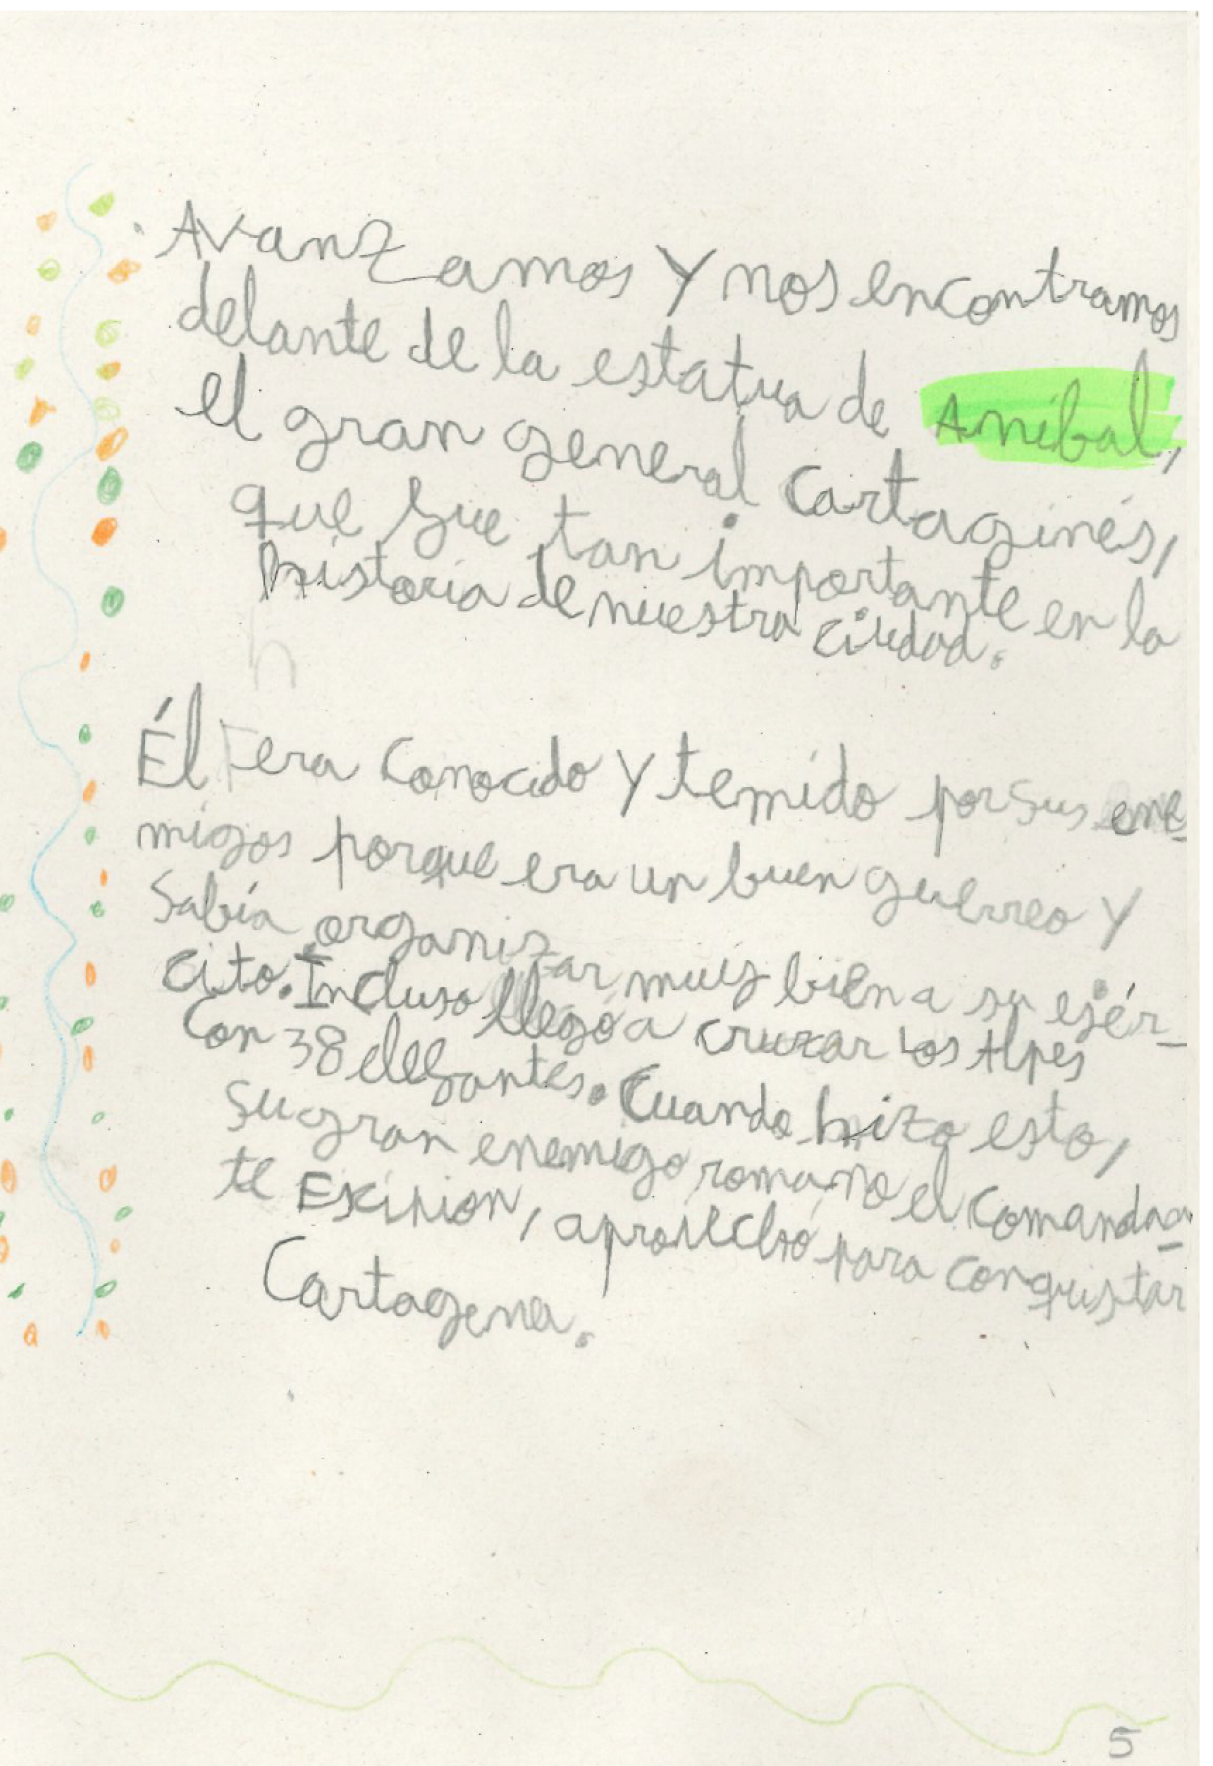 Avanzamos Y nos encontramos
delante de la estatua de Anibal,
el gran general Cartaginés,
que fue tan importante en la
historia de nuestra ciudad.
h
Él era Conocido Y temido por sus ene-
migos porque era un buen guerreo Y
Sabía organizar muy bien a su ejér-
cito. Incluso llegó a cruzar Los Alpes
Con 38 elefantes. Cuando hizo esto,
su gran enemigo romano el Comandan-
te Escipion, aprovechó para conquistar
Cartagena.
5